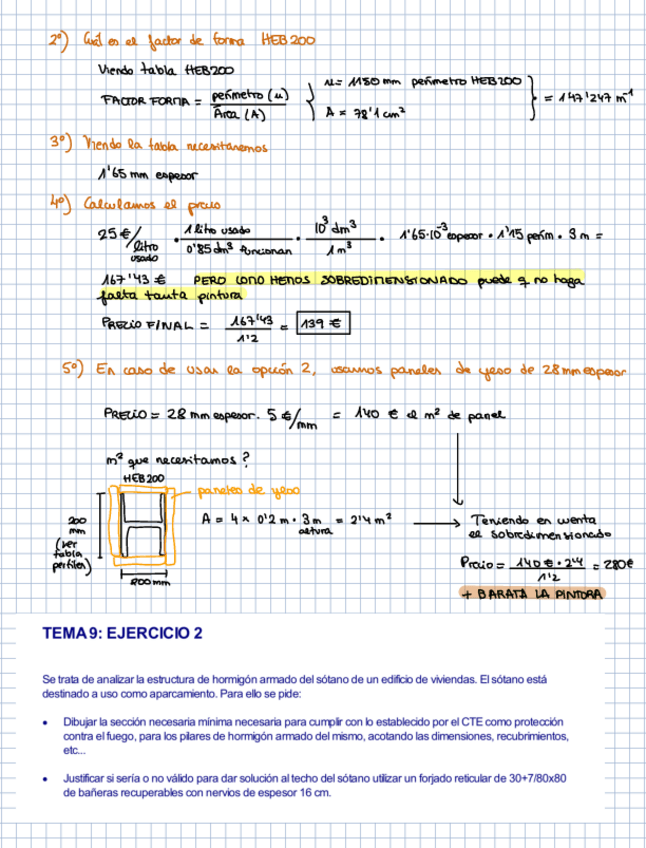 2º) Cuál es el factor de forma HEB200
Viendo tabla HEB200
FACTOR FORMA = perímetro (u) / Área (A)
u = 1150 mm perímetro HEB200
A = 78'1 cm²
= 147'247 m⁻¹
3º) Viendo la tabla necesitaremos
1'65 mm espesor
4º) Calculamos el precio
25 €/litro usado · 1 litro usado / 0'85 dm³ funcionan · 10³ dm³ / 1 m³ · 1'65·10⁻³ espesor · 1'15 perím · 3 m =
167'43 € PERO COMO HEMOS SOBREDIMENSIONADO puede q no haga
falta tanta pintura
PRECIO FINAL = 167'43 / 1'2 = 139 €
5º) En caso de usar la opción 2, usamos paneles de yeso de 28mm espesor
PRECIO = 28 mm espesor · 5 €/mm = 140 € el m² de panel
m² que necesitamos?
HEB200
paneles de yeso
200 mm (ver tabla perfiles)
200 mm
A = 4 x 0'2 m · 3 m altura = 2'4 m²
Teniendo en cuenta
el sobredimensionado
Precio = 140 € · 2'4 / 1'2 = 280€
+ BARATA LA PINTURA
TEMA 9: EJERCICIO 2
Se trata de analizar la estructura de hormigón armado del sótano de un edificio de viviendas. El sótano está
destinado a uso como aparcamiento. Para ello se pide:
• Dibujar la sección necesaria mínima necesaria para cumplir con lo establecido por el CTE como protección
contra el fuego, para los pilares de hormigón armado del mismo, acotando las dimensiones, recubrimientos,
etc...
• Justificar si sería o no válido para dar solución al techo del sótano utilizar un forjado reticular de 30+7/80x80
de bañeras recuperables con nervios de espesor 16 cm.